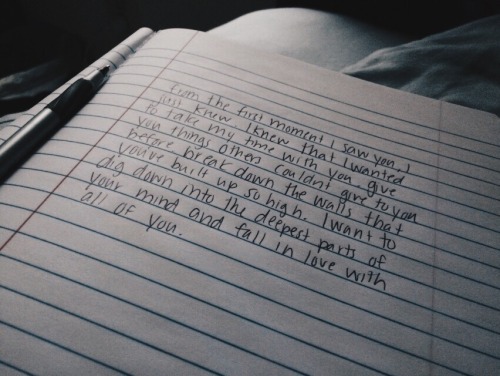 from the first moment I saw you, I
just knew I knew that I wanted
to take my time with you. give
you things others couldnt give to you
before break down the walls that
you've built up so high. I want to
dig down into the deepest parts of
your mind and fall in love with
all of you.